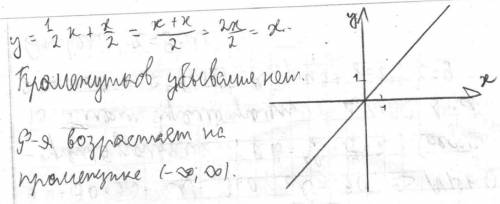 y = 1/2 x + x/2 = (x+x)/2 = 2x/2 = x.
Промежутков убывания нет.
Ф-я возрастает на
промежутке (-∞; ∞).
y
1
x
1